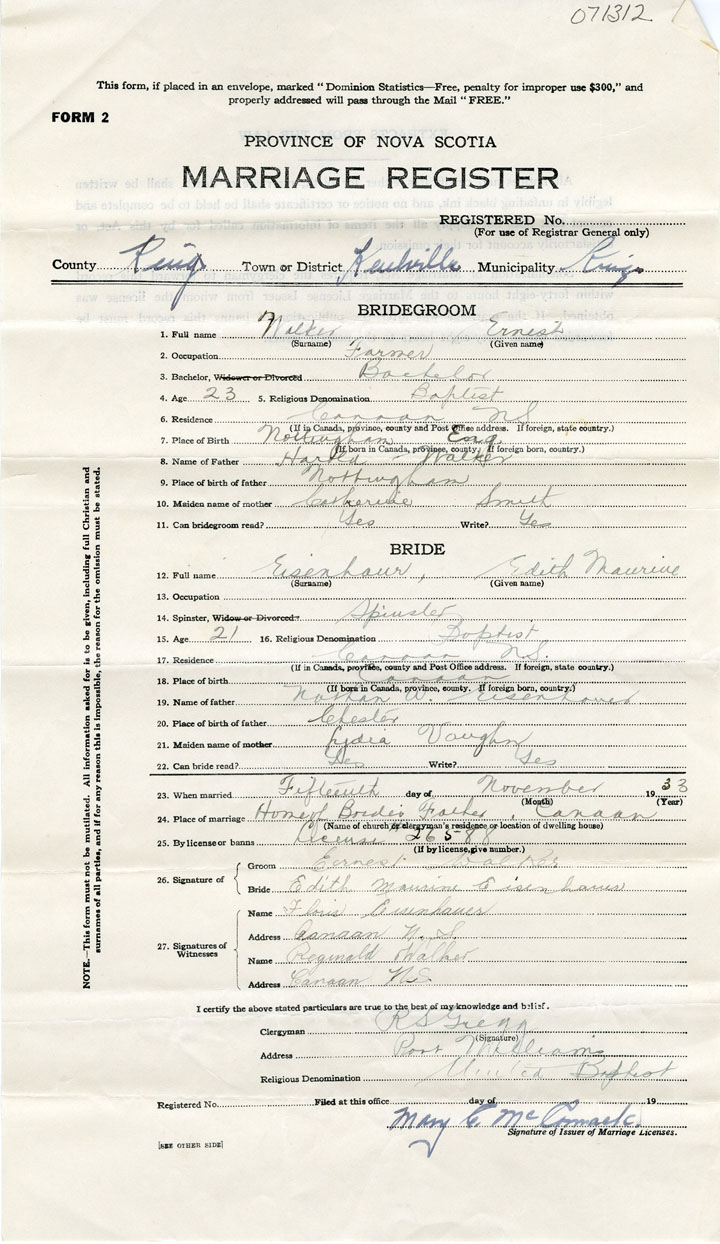 071312
This form, if placed in an envelope, marked "Dominion Statistics—Free, penalty for improper use $300," and
properly addressed will pass through the Mail "FREE."
FORM 2
PROVINCE OF NOVA SCOTIA
MARRIAGE REGISTER
REGISTERED No.
(For use of Registrar General only)
County Kings Town or District Kentville Municipality Kings
BRIDEGROOM
1. Full name Walker Ernest
(Surname) (Given name)
2. Occupation Farmer
3. Bachelor, Widower or Divorced Bachelor
4. Age 23 5. Religious Denomination Baptist
6. Residence Canaan N.S.
(If in Canada, province, county and Post Office address. If foreign, state country.)
7. Place of Birth Nottingham Eng.
(If born in Canada, province, county. If foreign born, country.)
8. Name of Father Harold Walker
9. Place of birth of father Nottingham
10. Maiden name of mother Catherine Smith
11. Can bridegroom read? Yes Write? Yes
BRIDE
12. Full name Eisenhaur, Edith Maurine
(Surname) (Given name)
13. Occupation
14. Spinster, Widow or Divorced Spinster
15. Age 21 16. Religious Denomination Baptist
17. Residence Canaan N.S.
(If in Canada, province, county and Post Office address. If foreign, state country.)
18. Place of birth Canaan
(If born in Canada, province, county. If foreign born, country.)
19. Name of father Nathan W. Eisenhauer
20. Place of birth of father Chester
21. Maiden name of mother Lydia Vaughn
22. Can bride read? Yes Write? Yes
23. When married Fifteenth day of November 1933
(Month) (Year)
24. Place of marriage Home of Brides Father, Canaan
(Name of church or clergyman's residence or location of dwelling house)
25. By license or banns License
(If by license, give number.)
26. Signature of
Groom Ernest Walker
Bride Edith Maurine Eisenhauer
27. Signatures of Witnesses
Name Eisenhauer
Address Canaan N.S
Name Reginald Walker
Address Canaan N.S.
I certify the above stated particulars are true to the best of my knowledge and belief.
Clergyman R S Gregg
(Signature)
Address Port Williams
Religious Denomination United Baptist
Registered No. Filed at this office day of 19
Mary E. McCormack
Signature of Issuer of Marriage Licenses.
[SEE OTHER SIDE]
NOTE.—This form must not be mutilated. All information asked for is to be given, including full Christian and
surnames of all parties, and if for any reason this is impossible, the reason for the omission must be stated.